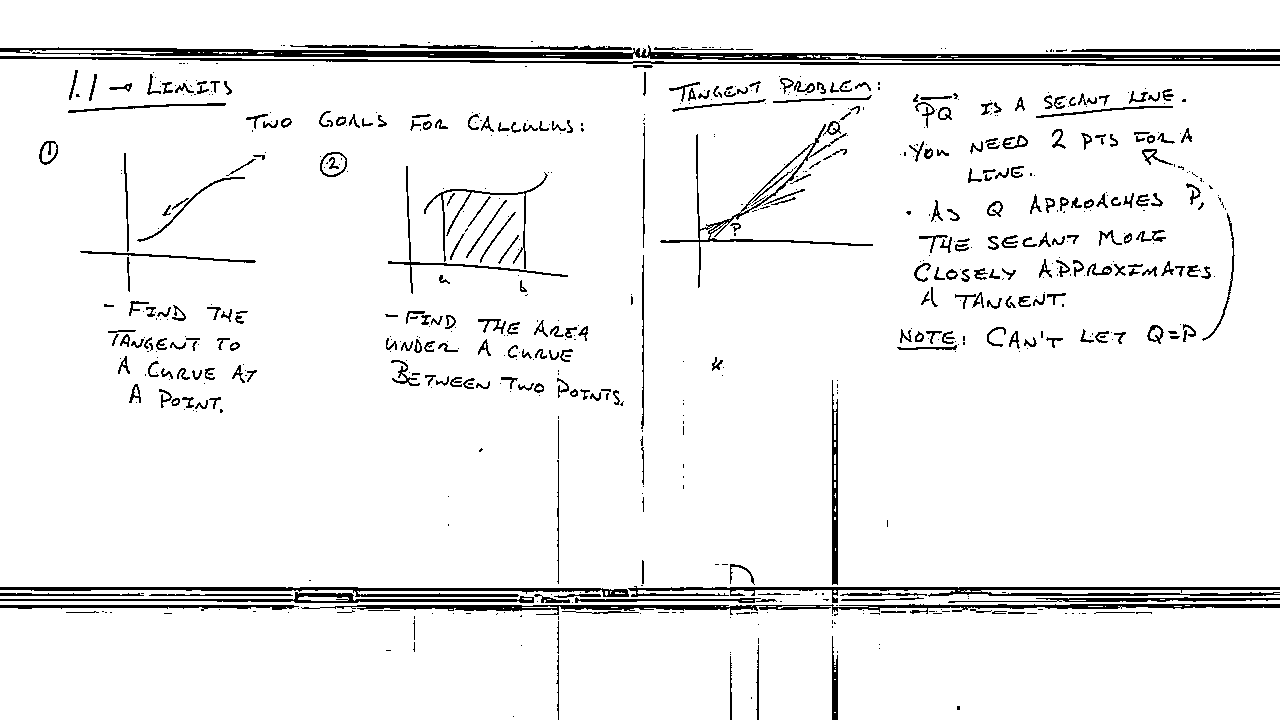 1.1 → LIMITS
TWO GOALS FOR CALCULUS:
①
- FIND THE
TANGENT TO
A CURVE AT
A POINT.
②
a b
- FIND THE AREA
UNDER A CURVE
BETWEEN TWO POINTS.
TANGENT PROBLEM:
Q
P
*
PQ IS A SECANT LINE.
· YOU NEED 2 PTS FOR A
LINE.
· AS Q APPROACHES P,
THE SECANT MORE
CLOSELY APPROXIMATES
A TANGENT.
NOTE: CAN'T LET Q=P